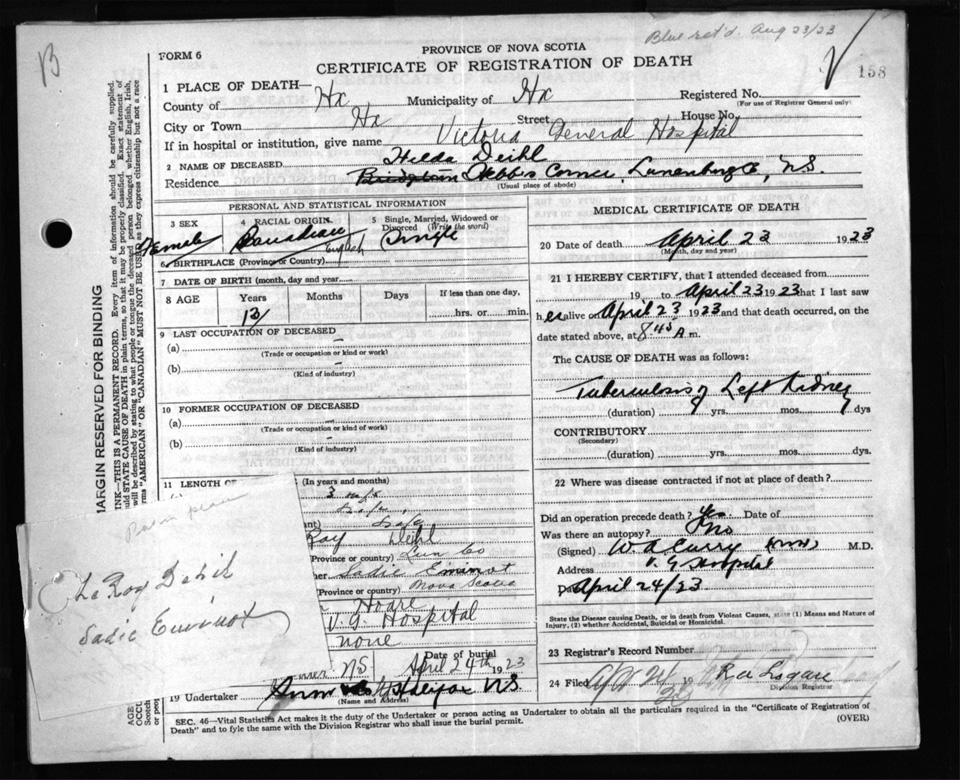 B
Blue ret'd. Aug 23/23
FORM 6
PROVINCE OF NOVA SCOTIA
CERTIFICATE OF REGISTRATION OF DEATH
158
1 PLACE OF DEATH—
County of Hx Municipality of Hx Registered No.
(For use of Registrar General only)
City or Town Hx Street House No.
If in hospital or institution, give name Victoria General Hospital
2 NAME OF DECEASED Hilda Deihl
Residence Corner, Lunenburg Co, N.S.
(Usual place of abode)
PERSONAL AND STATISTICAL INFORMATION
3 SEX 4 RACIAL ORIGIN 5 Single, Married, Widowed or Divorced (Write the word)
Female Canadian English Single
6 BIRTHPLACE (Province or Country)
7 DATE OF BIRTH (month, day and year)
8 AGE Years Months Days If less than one day,
13 hrs. or min.
9 LAST OCCUPATION OF DECEASED
(a) –
(Trade or occupation or kind of work)
(b) –
(Kind of industry)
10 FORMER OCCUPATION OF DECEASED
(a) –
(Trade or occupation or kind of work)
(b) –
(Kind of industry)
11 LENGTH OF
(In years and months)
Roy Deihl
Province or country) Lun Co
Sadie Eminot
Province or country) Nova Scotia
Hoare
V. G. Hospital
none
Date of burial
N.S April 24th 1923
19 Undertaker Snow & Co Halifax N.S.
(Name and Address)
MEDICAL CERTIFICATE OF DEATH
20 Date of death April 23 1923
(Month, day and year)
21 I HEREBY CERTIFY, that I attended deceased from
19 to April 23 1923 that I last saw
her alive on April 23 1923 and that death occurred, on the
date stated above, at 8 45 A m.
The CAUSE OF DEATH was as follows:
Tuberculosis of Left Kidney
(duration) yrs. mos. 7 dys
CONTRIBUTORY
(Secondary)
(duration) yrs. mos. dys.
22 Where was disease contracted if not at place of death?
Did an operation precede death? Yes. Date of
Was there an autopsy? no
(Signed) W. A Curry M.D.
Address V. G Hospital
Date April 24/23
State the Disease causing Death, or in death from Violent Causes, state (1) Means and Nature of
Injury, (2) whether Accidental, Suicidal or Homicidal.
23 Registrar's Record Number
24 Filed 19
Division Registrar
SEC. 46—Vital Statistics Act makes it the duty of the Undertaker or person acting as Undertaker to obtain all the particulars required in the "Certificate of Registration of
Death" and to fyle the same with the Division Registrar who shall issue the burial permit.
(OVER)
MARGIN RESERVED FOR BINDING
INK—THIS IS A PERMANENT RECORD. Every item of information should be carefully supplied.
Le Roy Dehil
Sadie Eminot